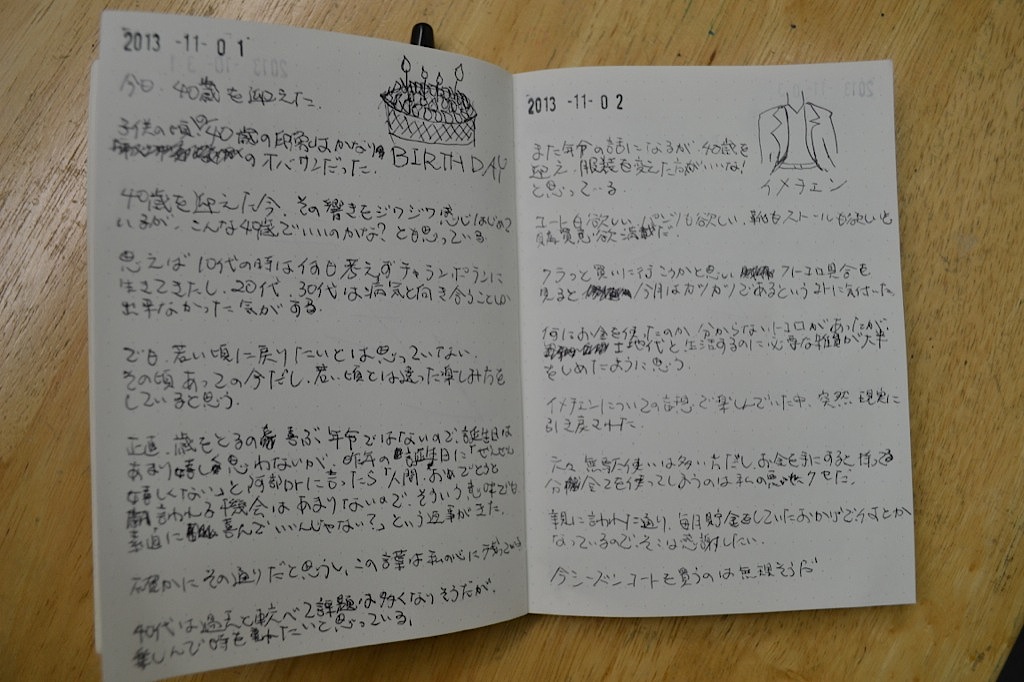 2013 -11- 01
今日、40歳を迎えた。
BIRTHDAY
子供の頃の40歳の印象はかなり
のオバサンだった。
40歳を迎えた今、その響きもジワジワ感じはじめて
いるが、こんな40歳でいいのかな?とも思っている。
思えば10代の時は何も考えずチャランポランに
生きてきたし、20代、30代は病気と向き合うことしか
出来なかった気がする。
でも、若い頃に戻りたいとは思っていない。
その頃あっての今だし、若い頃とは違った楽しみ方を
していると思う。
正直、歳をとるの喜ぶ年令ではないので、誕生日は
あまり嬉しく思わないが、昨年の誕生日に「ぜんぜん
嬉しくない」と阿部Drに言ったら「人間、おめでとうと
言われる機会はあまりないので、そういう意味でも
素直に喜んでいいんじゃない?」という返事がきた。
確かにその通りだと思うし、この言葉は私の心に残っている
40代は過去と較べて課題は多くなりそうだが、
楽しんで時を重ねたいと思っている。
2013 -11- 02
イメチェン
また年令の話になるが、40歳を
迎え、服装も変えた方がいいな!
と思っている。
コートも欲しい、パンツも欲しい、靴もストールも欲しいと
購買意欲満載だ。
フラっと買いに行こうかと思い、フトコロ具合を
見ると今月はカツカツであるというコトに気付いた。
何にお金を使ったのか、分からないトコロがあったが、
土地代と、生活するのに必要な雑貨が大半
をしめたように思う。
イメチェンについての妄想で楽しんでいた中、突然、現実に
引き戻された。
元々、無駄使いは多い方だし、お金を手にすると、持って
分全てを使ってしまうのは私の悪いクセだ。
親に言われた通り、毎月貯金をしていたおかげで何とか
なっているので、そこは感謝したい。
今シーズンコートを買うのは無理そうだ